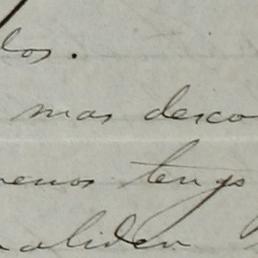 los.
mas desco
enos tengo
aliden